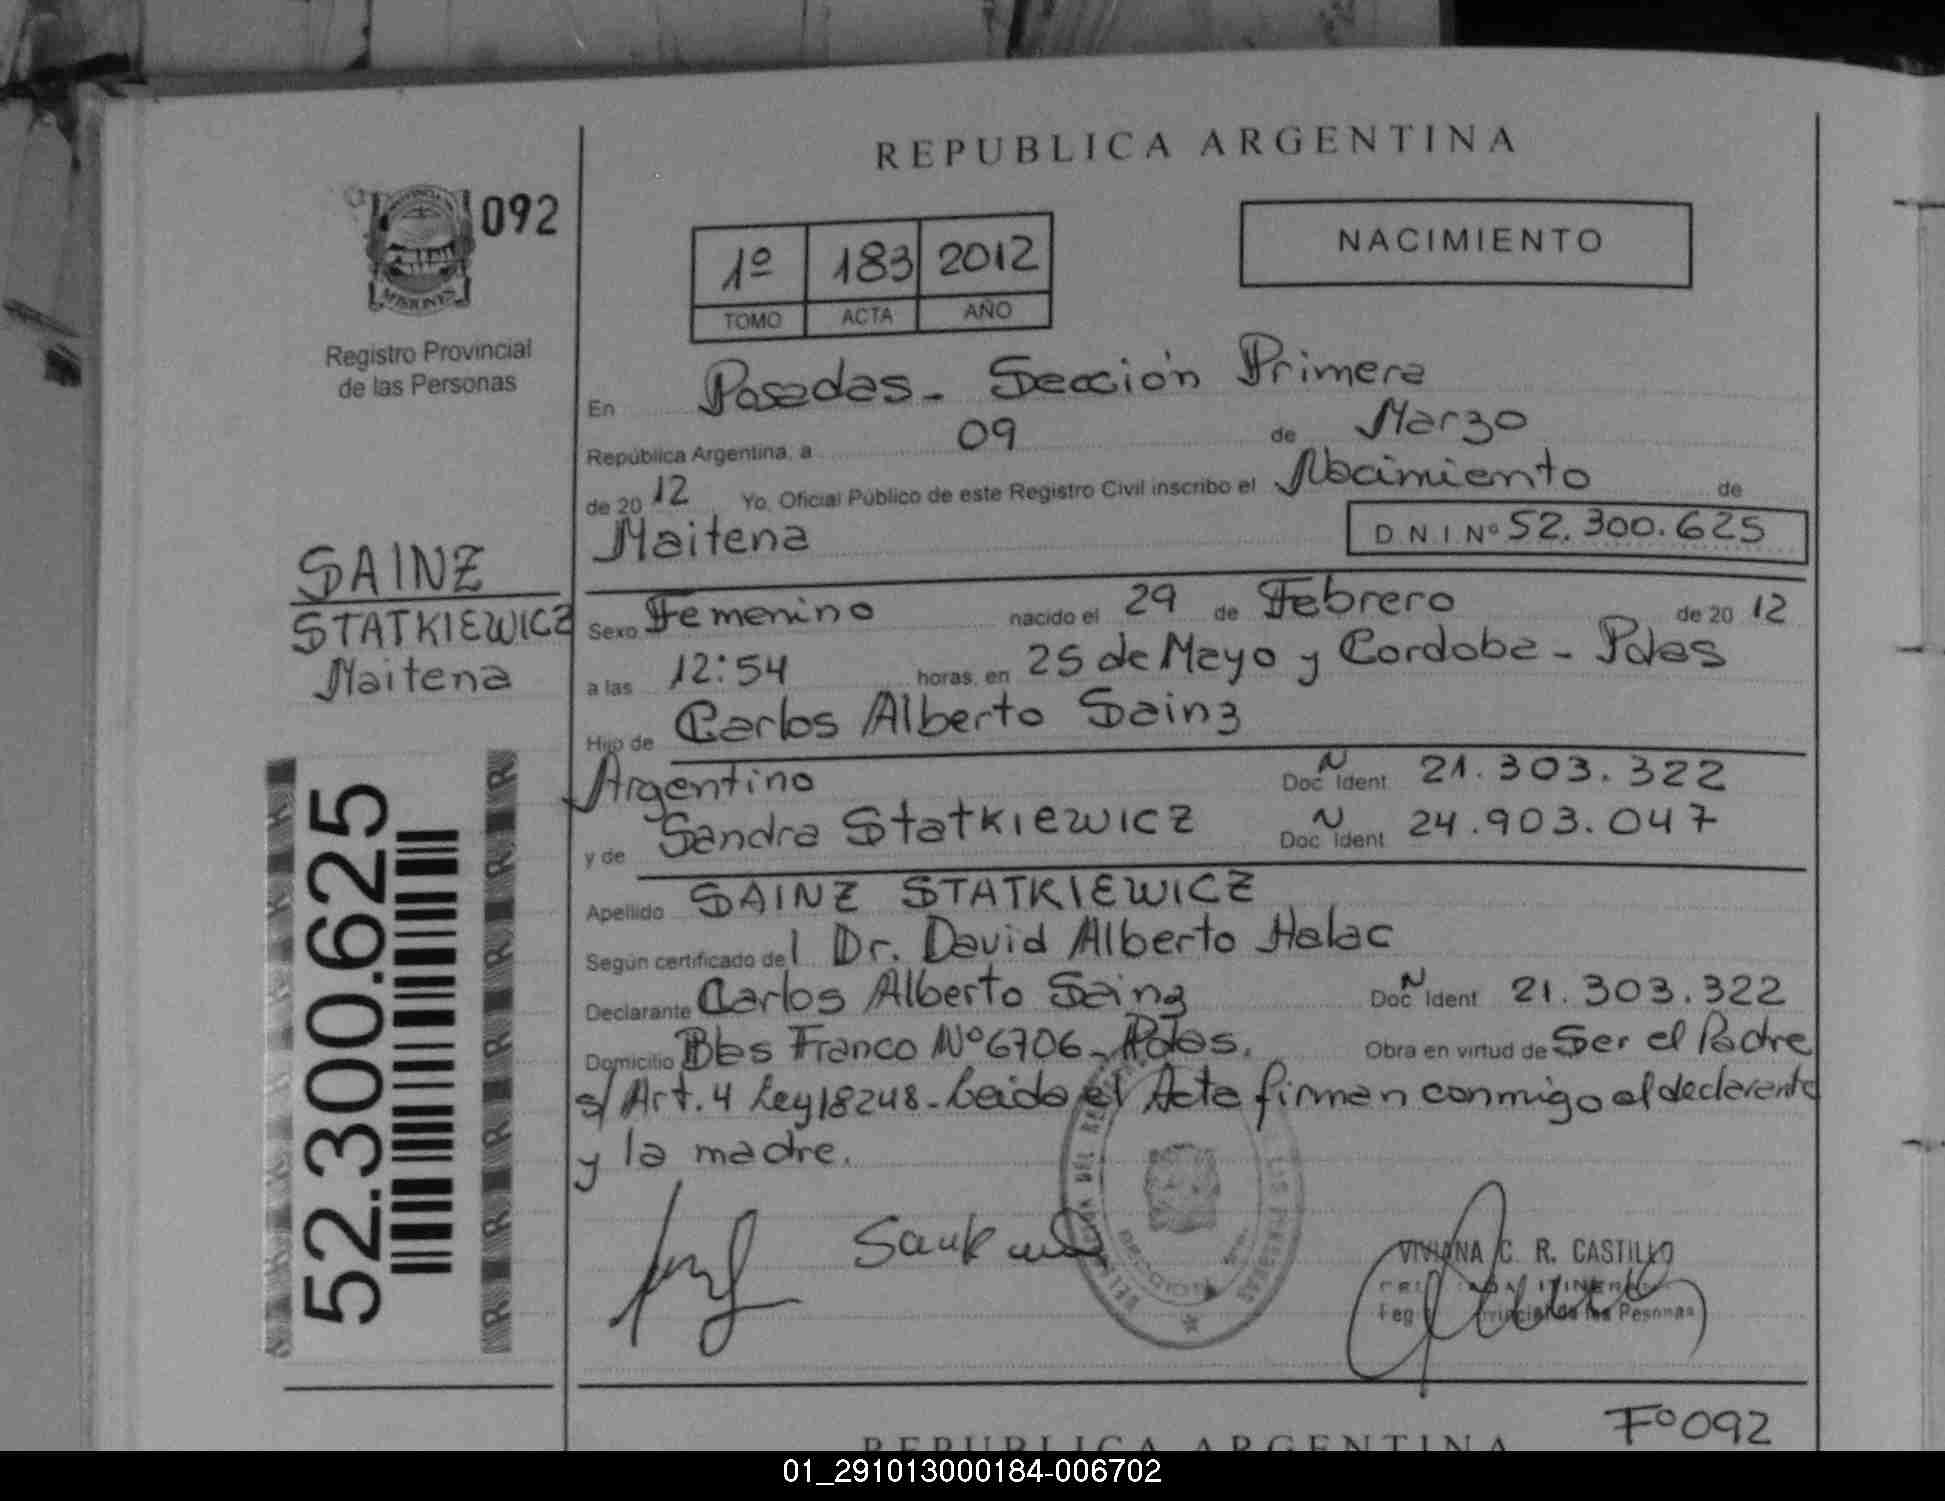 REPUBLICA ARGENTINA
092
MISIONES
Registro Provincial
de las Personas
1º 183 2012
TOMO ACTA AÑO
NACIMIENTO
En Posadas - Sección Primera
República Argentina, a 09 de Marzo
de 20 12 Yo, Oficial Público de este Registro Civil inscribo el Nacimiento de
Maitena D.N.I Nº 52.300.625
SAINZ
STATKIEWICZ
Maitena
Sexo Femenino nacido el 29 de Febrero de 20 12
a las 12:54 horas, en 25 de Mayo y Cordoba - Pdas
Hijo de Carlos Alberto Sainz
Argentino Doc Ident N 21.303.322
y de Sandra Statkiewicz Doc Ident N 24.903.047
Apellido SAINZ STATKIEWICZ
Según certificado del Dr. David Alberto Halac
Declarante Carlos Alberto Sainz Doc Ident N 21.303.322
Domicilio Blas Franco Nº 6706 - Pdas. Obra en virtud de Ser el Padre
s/ Art. 4 Ley 18248 - Leida el Acta firman conmigo el declarante
y la madre.
52.300.625
R R R R R R R
VIVIANA C. R. CASTILLO
Fº 092
REPUBLICA ARGENTINA
01_291013000184-006702